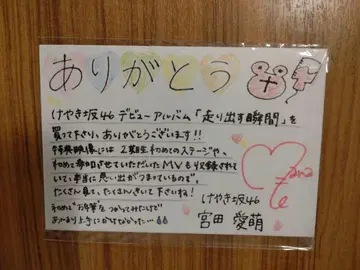 ありがとう
けやき坂46 デビューアルバム「走り出す瞬間」を
買って下さり、ありがとうございます!!
特典映像には2期生初めてのステージや、
初めて参加させていただいたMVも収録されて
いて、本当に思い出がつまっているので、
たくさん見て、たくさんきいて下さいね!
初めて"お年筆"をつかってみたけど
あんまり上手にかけなかった…
けやき坂46
宮田 愛萌
Mana